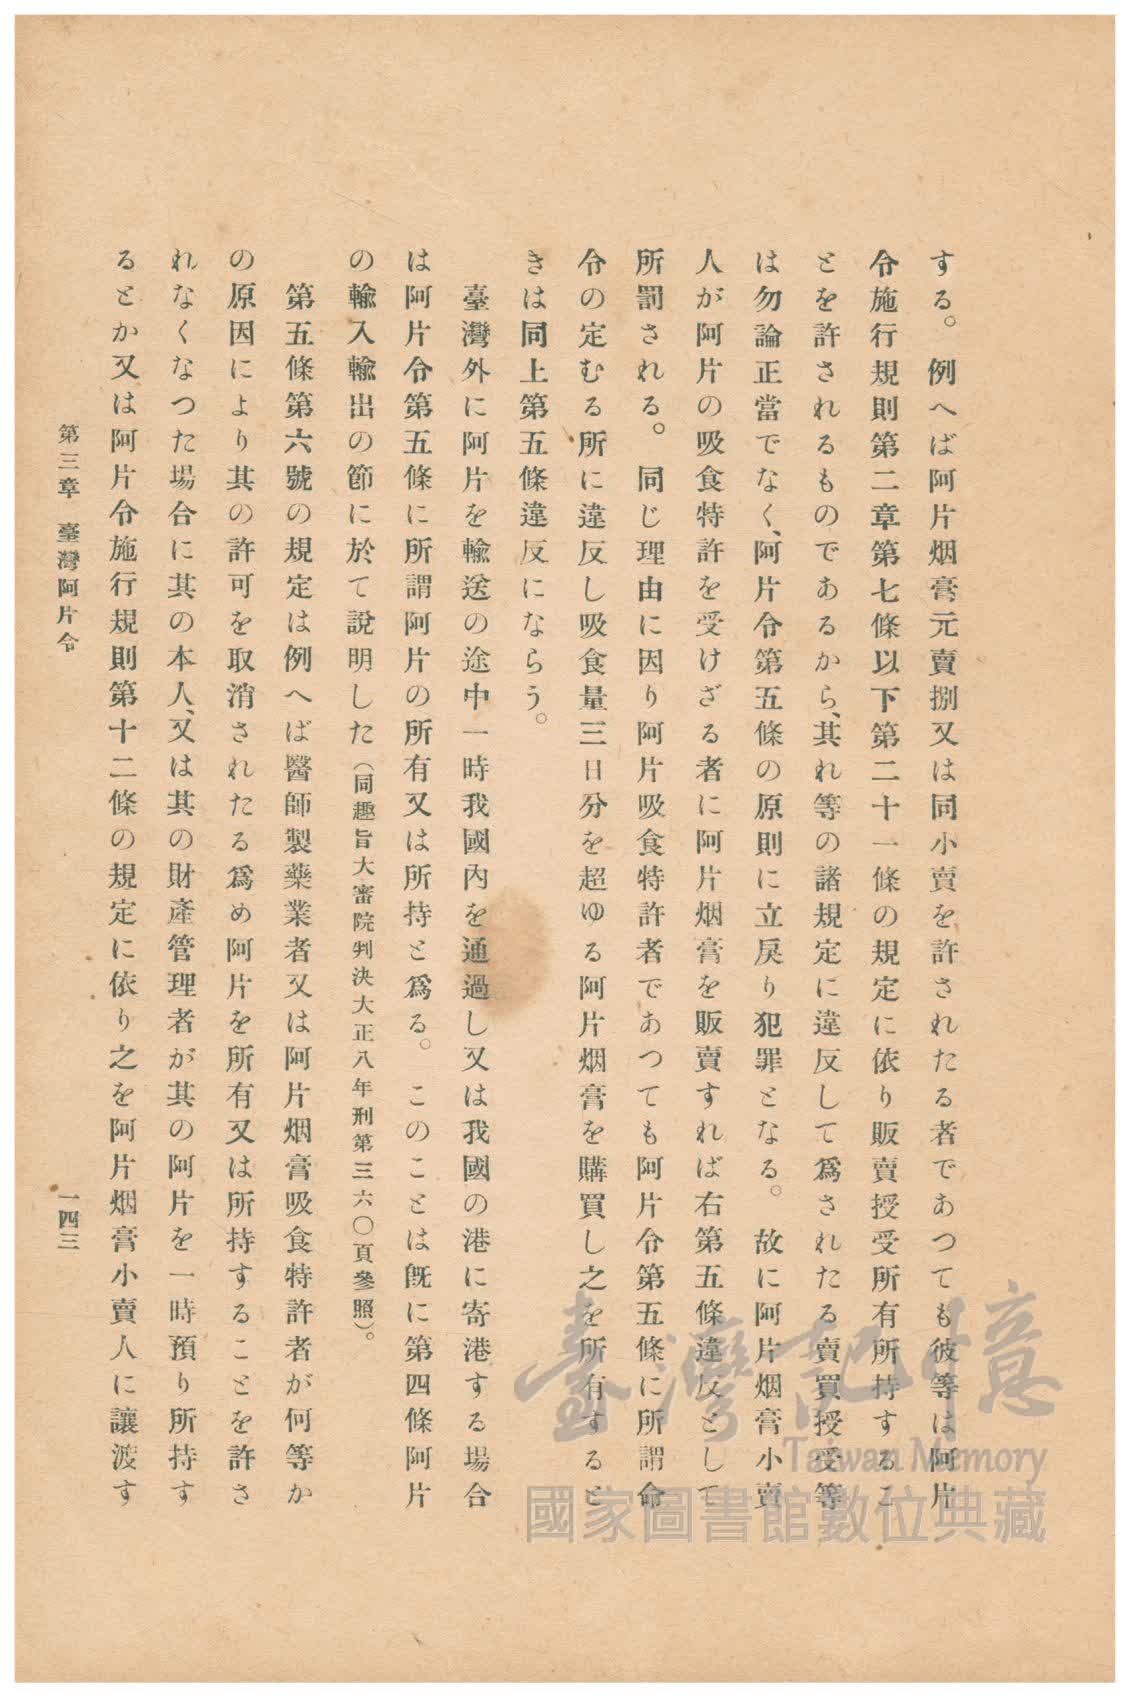 する。例へば阿片烟膏元賣捌又は同小賣を許されたる者であつても彼等は阿片
令施行規則第二章第七條以下第二十一條の規定に依り販賣授受所有所持するこ
とを許されるものであるから、其れ等の諸規定に違反して爲されたる賣買授受等
は勿論正當でなく、阿片令第五條の原則に立戾り犯罪となる。故に阿片烟膏小賣
人が阿片の吸食特許を受けざる者に阿片烟膏を販賣すれば右第五條違反として
所罰される。同じ理由に因り阿片吸食特許者であつても阿片令第五條に所謂命
令の定むる所に違反し吸食量三日分を超ゆる阿片烟膏を購買し之を所有すると
きは同上第五條違反にならう。
臺灣外に阿片を輸送の途中一時我國內を通過し又は我國の港に寄港する場合
は阿片令第五條に所謂阿片の所有又は所持と爲る。このことは旣に第四條阿片
の輸入輸出の節に於て說明した（同趣旨大審院判決大正八年刑第三六〇頁參照）。
第五條第六號の規定は例へば醫師製藥業者又は阿片烟膏吸食特許者が何等か
の原因により其の許可を取消されたる爲め阿片を所有又は所持することを許さ
れなくなつた場合に其の本人、又は其の財產管理者が其の阿片を一時預り所持す
るとか又は阿片令施行規則第十二條の規定に依り之を阿片烟膏小賣人に讓渡す
第三章 臺灣阿片令
一四三
臺灣記憶
Taiwan Memory
國家圖書館數位典藏